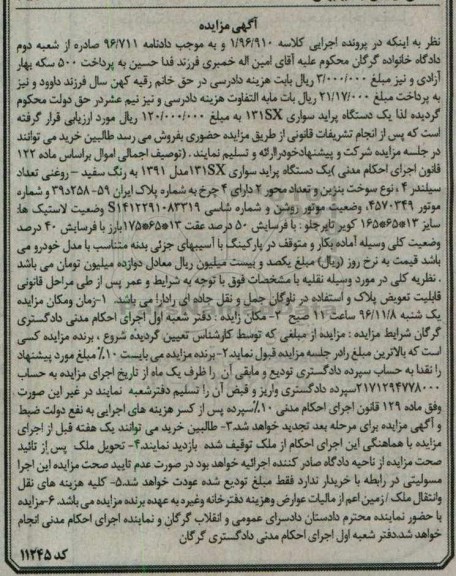 آگهی مزایده
نظر به اینکه در پرونده اجرایی کلاسه 1/96/910 و به موجب دادنامه 96/711 صادره از شعبه دوم
دادگاه خانواده گرگان محکوم علیه آقای امین اله خمیری فرزند فدا حسین به پرداخت 500 سکه بهار
آزادی و نیز مبلغ 3/000/000 ریال بابت هزینه دادرسی در حق خانم رقیه کهن سال فرزند داوود و نیز
به پرداخت مبلغ 21/17/000 ریال بات مابه التفاوت هزینه دادرسی و نیز نیم عشردر حق دولت محکوم
گردیده لذا یک دستگاه پراید سواری 131SX به مبلغ 120/000/000 ریال مورد ارزیابی قرار گرفته
است که پس از انجام تشریفات قانونی از طریق مزایده حضوری بفروش می رسد طالبین خرید می توانند
در جلسه مزایده شرکت و پیشنهادخودراارائه و تسلیم نمایند . (توصیف اجمالی اموال براساس ماده 122
قانون اجرای احکام مدنی )یک دستگاه پراید سواری 131SXمدل 1391 به رنگ سفید – روغنی تعداد
سیلندر 4 ، نوع سوخت بنزین و تعداد محور 2 دارای 4 چرخ به شماره پلاک ایران 59- 258د39 و شماره
موتور 4570349، وضعیت موتور روشن و شماره شاسی S1412291083319 وضعیت لاستیک ها:
سایز 13*65*165 کویر تایرجلو : با فرسایش 50 درصد عقت 13*65*175بارز با فرسایش 40 درصد
وضعیت کلی وسیله آماده بکار و متوقف در پارکینگ با آسیبهای جزئی بدنه متناسب با مدل خودرو می
باشد قیمت به نرخ روز (ریال) مبلغ یکصد و بیست میلیون ریال معادل دوازده میلیون تومان می باشد
. نظریه کلی در مورد وسیله نقلیه با مشخصات فوق با توجه به شرایط و عمر پس از طی مراحل قانونی
قابلیت تعویض پلاک و استفاده در ناوگان حمل و نقل جاده ای رادارا می باشد. 1-زمان ومکان مزایده
یک شنبه 96/11/8 ساعت 11 صبح 2- مکان زایده : دفتر شعبه اول اجرای احکام مدنی دادگستری
گرگان شرایط مزایده : مزایده از مبلغی که توسط کارشناس تعیین گردیده شروع ، برنده مزایده کسی
است که بالاترین مبلغ رادر جلسه مزایده قبول نماید2- برنده مزایده می بایست 10٪ مبلغ مورد پیشنهاد
را نقدا به حساب سپرده دادگستری تودیع و مابقی آن را ظرف یک ماه از تاریخ اجرای مزایده به حساب
2171294778000سپرده دادگستری واریز و قبض آن را تسلیم دفترشعبه نمایند در غیر این صورت
وفق ماده 129 قانون اجرای احکام مدنی 10٪سپرده پس از کسر هزینه های اجرایی به نفع دولت ضبط
و آگهی مزایده برای مرحله بعد تجدید خواهد شد.3- طالبین خرید می توانند یک هفته قبل از اجرای
مزایده با هماهنگی این اجرای احکام از ملک توقیف شده بازدید نمایند.4- تحویل ملک پس از تائید
صحت مزایده از ناحیه دادگاه صادر کننده اجرائیه خواهد بود در صورت عدم تایید صحت مزایده این اجرا
مسولیتی در رابطه با خریدار ندارد فقط مبلغ تودیع شده عودت خواهد شد.5- کلیه هزینه های نقل
وانتقال ملک /زمین اعم از مالیات عوارض وهزینه دفترخانه وغیره به عهده برنده مزایده می باشد. 6-مزایده
با حضور نماینده محترم دادستان دادسرای عمومی و انقلاب گرگان و نماینده اجرای احکام مدنی انجام
خواهد شد.دفتر شعبه اول اجرای احکام مدنی دادگستری گرگان
کد 11245